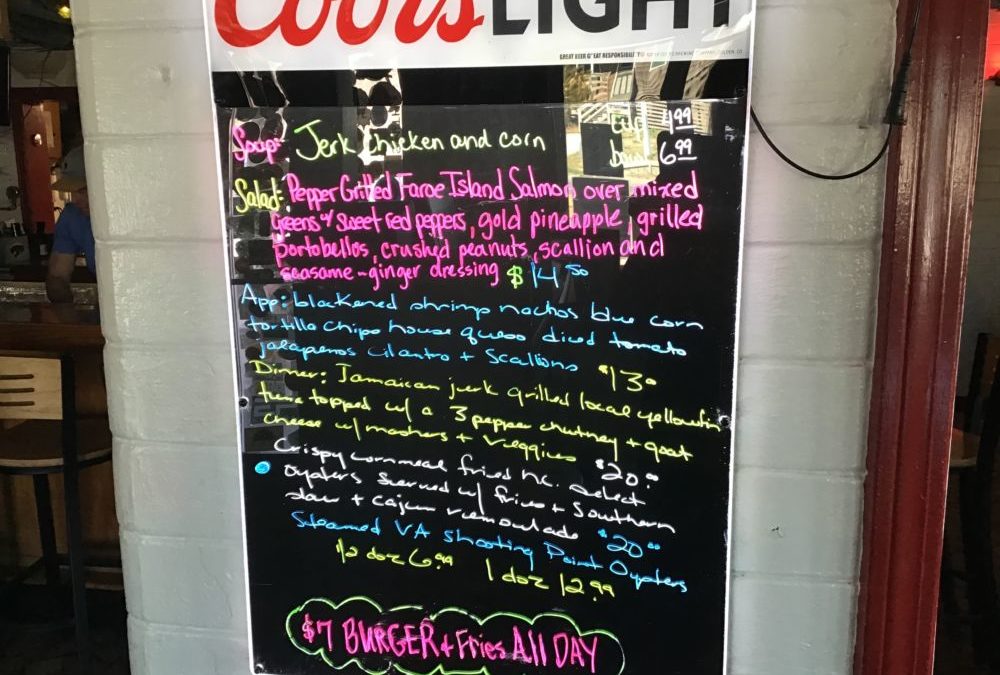 Coors LIGHT
GREAT BEER GREAT RESPONSIBILITY
Soup: Jerk Chicken and corn
Cup 4.99
bowl 6.99
Salad: Pepper Grilled Faroe Island Salmon over mixed
greens w/ sweet red peppers, gold pineapple, grilled
portobellos, crushed peanuts, scallion and
seasame-ginger dressing $14.50
App: blackened shrimp nachos blue corn
tortilla chips house queso diced tomato
jalapenos cilantro + scallions $13.0
Dinner: Jamaican jerk grilled local yellowfin
tuna topped w/ a 3 pepper chutney + goat
cheese w/ mashers + veggies $20.0
Crispy cornmeal fried nc. select
oysters served w/ fries + Southern
slaw + cajun remoulade $20.00
Steamed VA Shooting Point Oysters
1/2 doz 6.99 1 doz 12.99
$7 BURGER + Fries All DAY